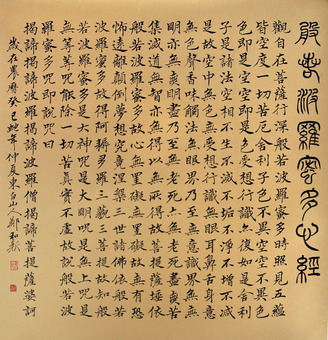 般若波羅蜜多心經
觀自在菩薩行深般若波羅蜜多時照見五蘊
皆空度一切苦厄舍利子色不異空空不異色
色即是空空即是色受想行識亦復如是舍利
子是諸法空相不生不滅不垢不淨不增不減
是故空中無色無受想行識無眼耳鼻舌身意
無色聲香味觸法無眼界乃至無意識界無無
明亦無無明盡乃至無老死亦無老死盡無苦
集滅道無智亦無得以無所得故菩提薩埵依
般若波羅蜜多故心無罣礙無罣礙故無有恐
怖遠離顛倒夢想究竟涅槃三世諸佛依般若
波羅蜜多故得阿耨多羅三藐三菩提故知般
若波羅蜜多是大神咒是大明咒是無上咒是
無等等咒能除一切苦真實不虛故說般若波
羅蜜多咒即說咒曰
揭諦揭諦波羅揭諦波羅僧揭諦菩提薩婆訶
歲在農曆癸巳蛇年仲夏東白山人